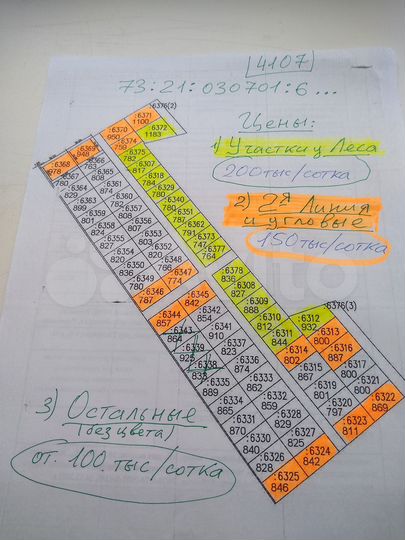 4107
73:21:030701:6...
Цены:
1) Участки у Леса
200 тыс/сотка
2) 2я Линия
и угловые
150 тыс/сотка
3) Остальные
(без цвета)
от 100 тыс/сотка
:6376(2)
:6371
1100
:6370
950
:6372
1183
:6369
948
:6368
978
:6374
758
:6375
782
:6382
817
:6318
784
:6329
780
:6340
780
:6351
787
:6362
791
:6373
747
:6377
764
:6366
763
:6367
780
:6365
808
:6361
874
:6364
780
:6360
782
:6363
899
:6357
808
:6359
801
:6356
796
:6358
824
:6353
803
:6355
827
:6352
820
:6354
820
:6349
832
:6350
836
:6348
790
:6347
774
:6346
787
:6345
842
:6344
857
:6342
854
:6343
864
:6341
910
:6339
925
:6337
823
:6338
835
:6336
874
:6335
889
:6333
862
:6334
865
:6332
859
:6331
870
:6329
828
:6330
840
:6327
825
:6326
828
:6324
842
:6325
846
:6378
836
:6308
827
:6309
888
:6310
812
:6311
844
:6312
932
:6376(3)
:6313
800
:6314
802
:6316
887
:6315
867
:6317
800
:6319
801
:6321
800
:6320
797
:6322
869
:6323
811